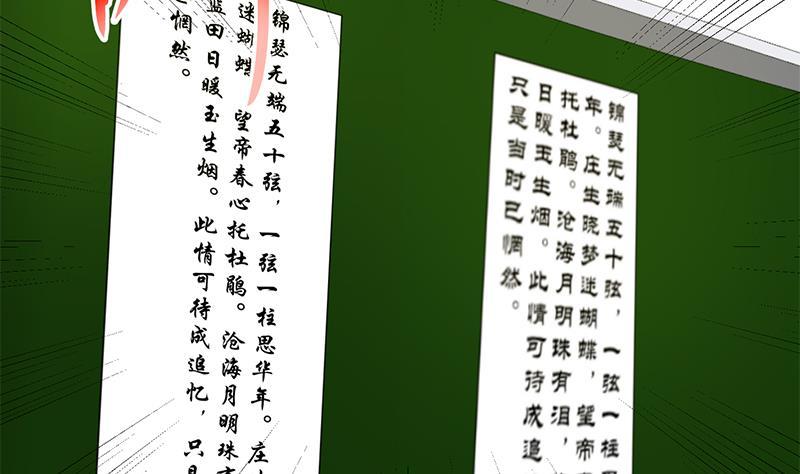 锦瑟无端五十弦，一弦一柱思华年。庄
迷蝴蝶 望帝春心托杜鹃。沧海月明珠
蓝田日暖玉生烟。此情可待成追忆，只
惘然。
锦瑟无端五十弦，一弦一柱
年。庄生晓梦迷蝴蝶，望帝
托杜鹃。沧海月明珠有泪，
日暖玉生烟。此情可待成追
只是当时已惘然。